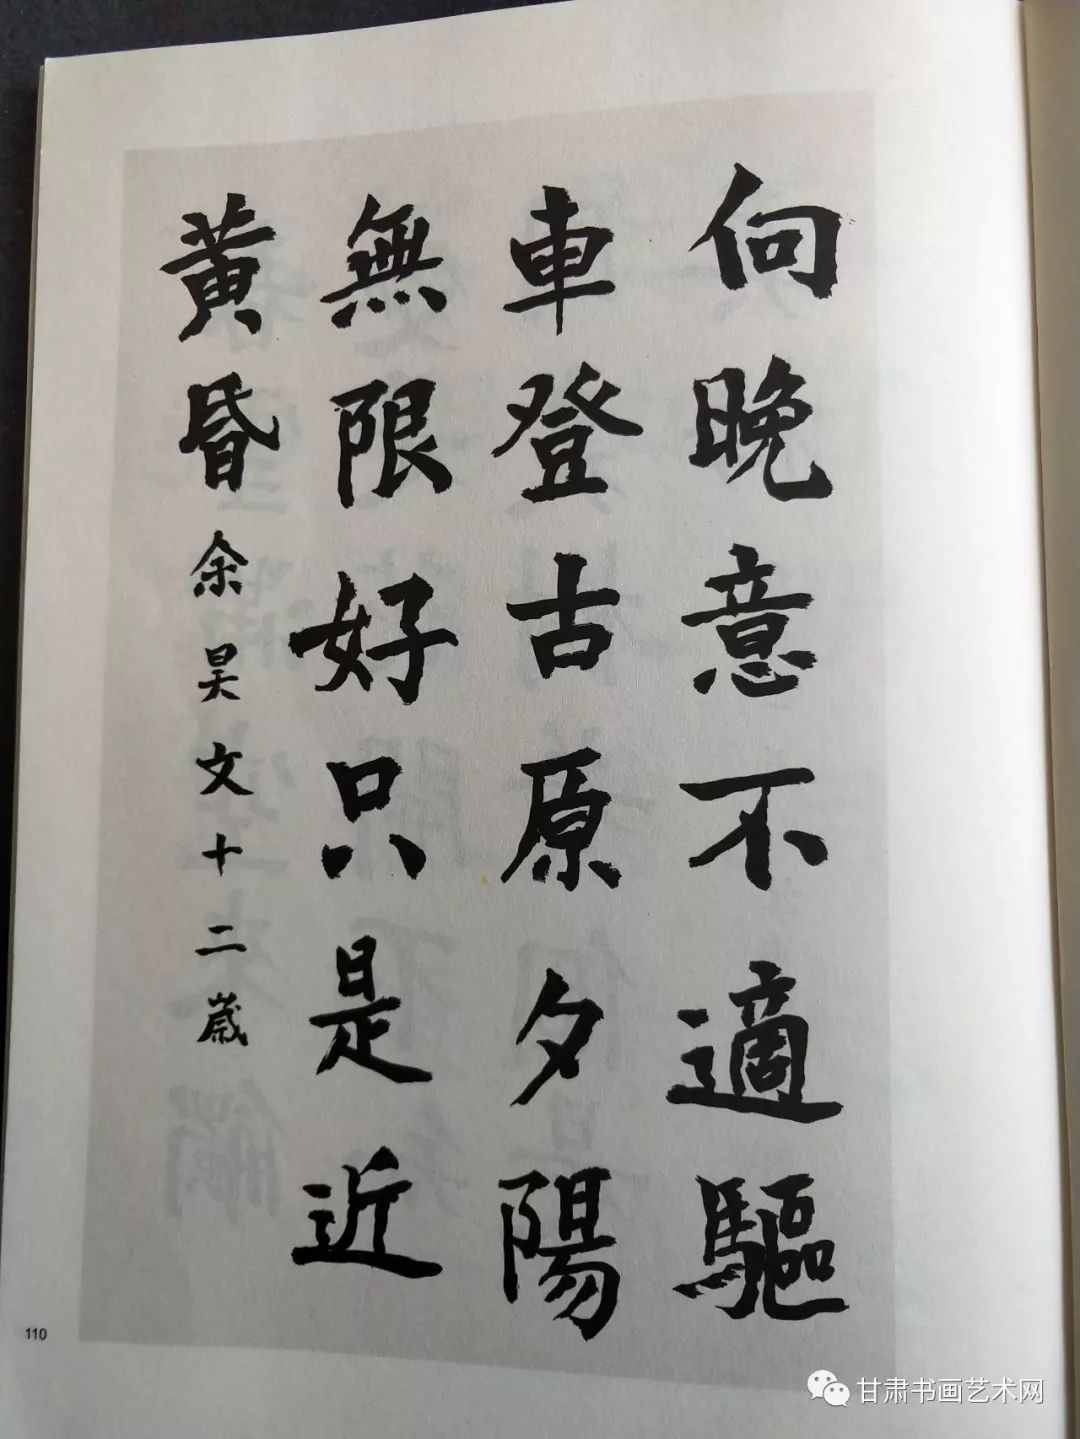 向晚意不適驅
車登古原夕陽
無限好只是近
黄昏余昊文十二歲
110
甘肃书画艺术网